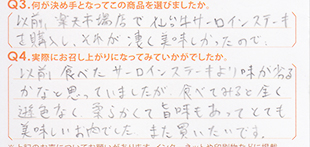 Q3.何が決め手となってこの商品を選びましたか。
以前、楽天市場店で仙台牛サーロインステーキ
を購入し、それが凄く美味しかったので。
Q4.実際にお召し上がりになってみていかがでしたか。
以前食べたサーロインステーキより味が劣る
かなと思っていましたが、食べてみると全く
遜色なく柔らかくて旨味もあってとても
美味しいお肉でした。また買いたいです。